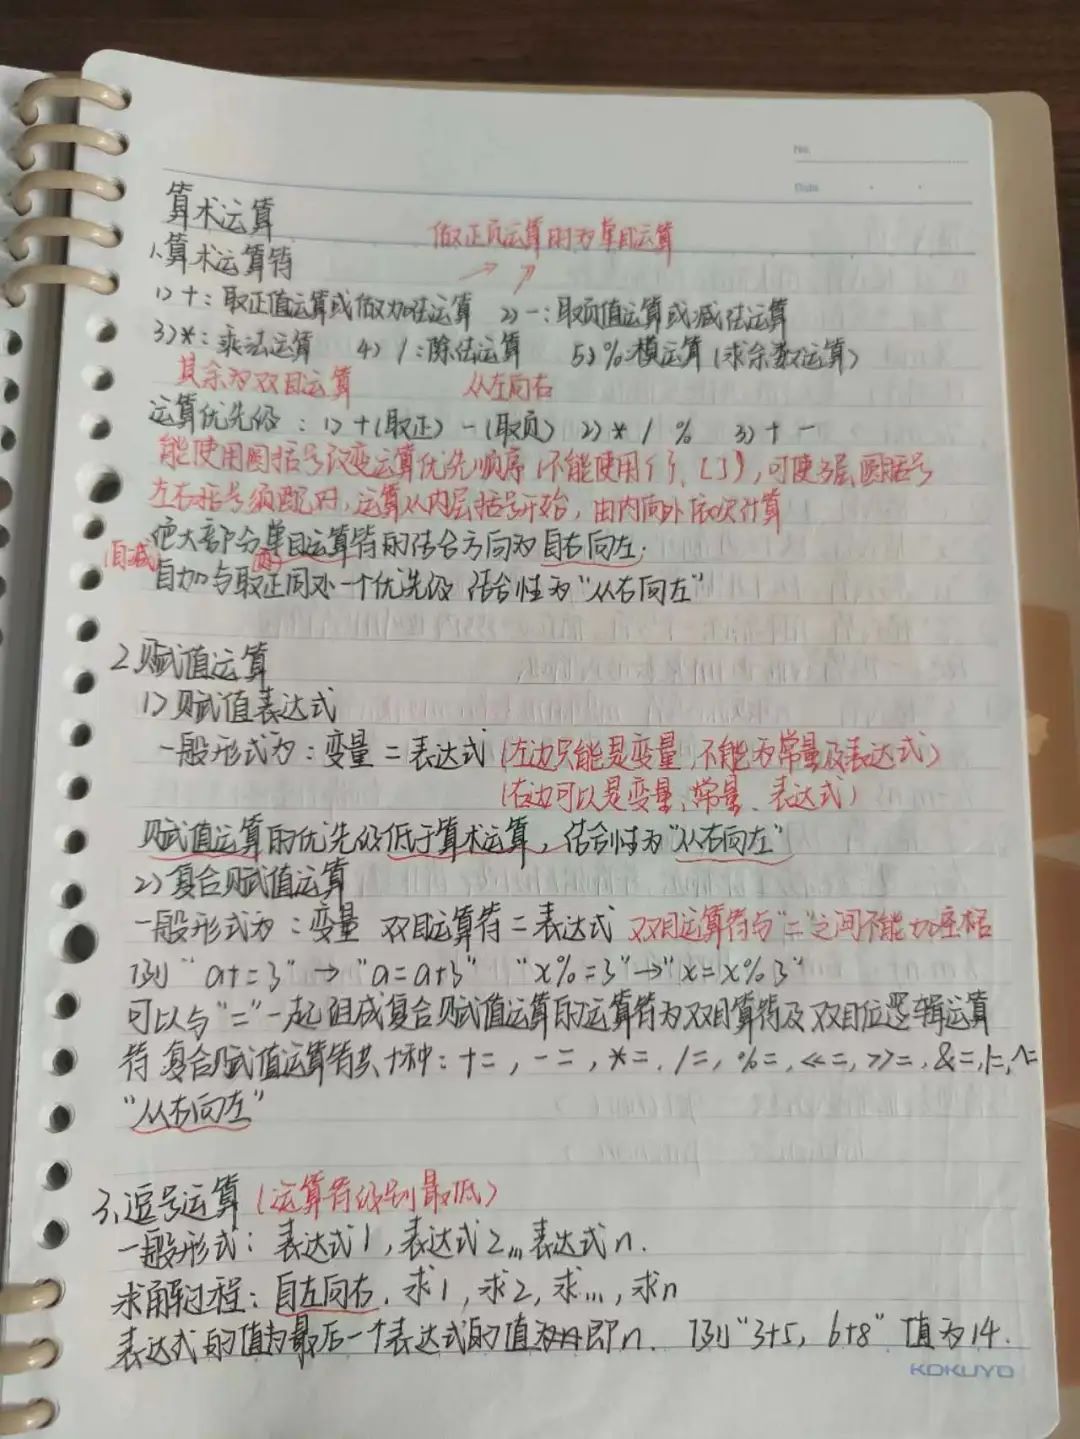 No.
Date
算术运算
做正负运算时为单目运算
1.算术运算符
1)+:取正值运算或做加法运算 2)-:取负值运算或减法运算
3)*:乘法运算 4)/:除法运算 5)%:模运算(求余数运算)
其余为双目运算 从左向右
运算优先级:1)+(取正)-(取负) 2)* / % 3)+ -
能使用圆括号改变运算优先顺序(不能使用{ }、[ ]),可使多层圆括号
左右括号须配对,运算从内层括号开始,由内向外依次计算
绝大部分单目运算符的结合方向为自右向左.
(自减) (负)
自加与取正同为一个优先级 结合性为“从右向左”
2.赋值运算
1)赋值表达式
一般形式为:变量=表达式(左边只能是变量,不能为常量及表达式)
(右边可以是变量、常量、表达式)
赋值运算的优先级低于算术运算,结合性为“从右向左”
2)复合赋值运算
一般形式为:变量 双目运算符=表达式 双目运算符与“=”之间不能加座格
例“a+=3”→“a=a+3” “x%=3”→“x=x%3”
可以与“=”一起组成复合赋值运算的运算符为双目算符及双目位逻辑运算
符 复合赋值运算符共十种:+=,-=,*=,/=,%=,<<=,>>=,&=,|=,^=
“从右向左”
3.逗号运算(运算符级别最低)
一般形式:表达式1,表达式2,…表达式n.
求解过程:自左向右.求1,求2,求…,求n
表达式的值为最后一个表达式的值即n. 例“3+5,6+8”值为14.
KOKUYO